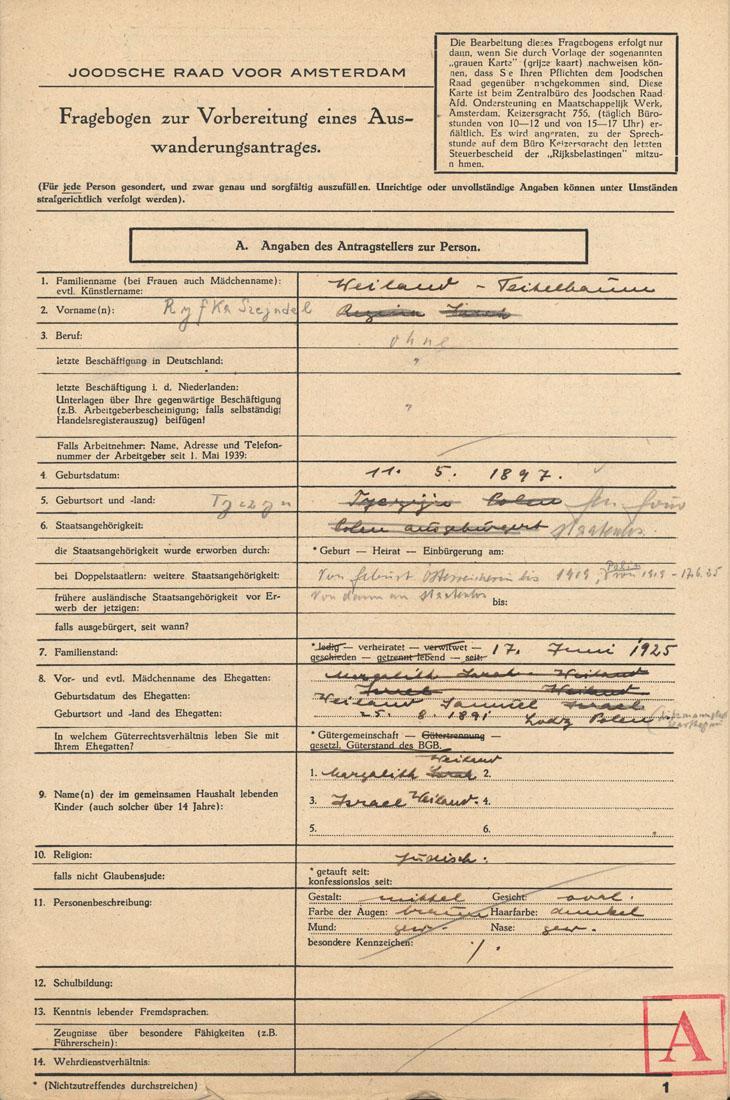 JOODSCHE RAAD VOOR AMSTERDAM
Fragebogen zur Vorbereitung eines Aus-
wanderungsantrages.
Die Bearbeitung dieses Fragebogens erfolgt nur
dann, wenn Sie durch Vorlage der sogenannten
„grauen Karte" (grijze kaart) nachweisen kön-
nen, dass S e Ihren Pflichten dem Joodschen
Raad gegenüber nachgekommen sind. Diese
Karte ist beim Zentralbüro des Joodschen Raad
Afd. Ondersteuning en Maatschappelijk Werk,
Amsterdam, Keizersgracht 756, (täglich Büro-
stunden von 10—12 und von 15—17 Uhr) er-
hältlich. Es wird angeraten, zu der Sprech-
stunde auf dem Büro Keizersgracht den letzten
Steuerbescheid der „Rijksbelastingen" mitzu-
n hmen.
(Für jede Person gesondert, und zwar genau und sorgfältig auszufüllen. Unrichtige oder unvollständige Angaben können unter Umständen
strafgerichtlich verfolgt werden).
A. Angaben des Antragstellers zur Person.
1. Familienname (bei Frauen auch Mädchenname): Weiland - Teitelbaum
evtl. Künstlername:
2. Vorname(n): Ryfka Szejndel Regina Sarah
3. Beruf: ohne
letzte Beschäftigung in Deutschland: "
letzte Beschäftigung i. d. Niederlanden:
Unterlagen über Ihre gegenwärtige Beschäftigung
(z.B. Arbeitgeberbescheinigung; falls selbständig; "
Handelsregisterauszug) beifügen!
Falls Arbeitnehmer: Name, Adresse und Telefon-
nummer der Arbeitgeber seit 1. Mai 1939:
4. Geburtsdatum: 11. 5. 1897.
5. Geburtsort und -land: Tyczyn Polen
6. Staatsangehörigkeit: Polen ausgebürgert staatenlos.
die Staatsangehörigkeit wurde erworben durch: * Geburt — Heirat — Einbürgerung am:
bei Doppelstaatlern: weitere Staatsangehörigkeit: Von Geburt Österreicherin bis 1919, Polin von 1919 - 17.6.25
frühere ausländische Staatsangehörigkeit vor Er- von dann an staatenlos
werb der jetzigen: bis:
falls ausgebürgert, seit wann?
7. Familienstand: * ledig — verheiratet — verwitwet — 17. Juni 1925
geschieden — getrennt lebend — seit:
8. Vor- und evtl. Mädchenname des Ehegatten: Margalith Sarah Weiland
Israel Weiland
Geburtsdatum des Ehegatten: Weiland Samuel Israel
Geburtsort und -land des Ehegatten: 25. 8. 1891 Lodz Polen
In welchem Güterrechtsverhältnis leben Sie mit * Gütergemeinschaft — Gütertrennung —
Ihrem Ehegatten? gesetzl. Güterstand des BGB.
Weiland
1. Margalith Sarah 2.
9. Name(n) der im gemeinsamen Haushalt lebenden
Kinder (auch solcher über 14 Jahre): 3. Israel Weiland. 4.
5. 6.
10. Religion: jüdisch.
falls nicht Glaubensjude: * getauft seit:
konfessionslos seit:
11. Personenbeschreibung: Gestalt: mittel Gesicht: oval.
Farbe der Augen: braun Haarfarbe: dunkel
Mund: gew. Nase: gew.
besondere Kennzeichen: ./.
12. Schulbildung:
13. Kenntnis lebender Fremdsprachen:
Zeugnisse über besondere Fähigkeiten (z.B.
Führerschein):
14. Wehrdienstverhältnis:
A
* (Nichtzutreffendes durchstreichen) 1